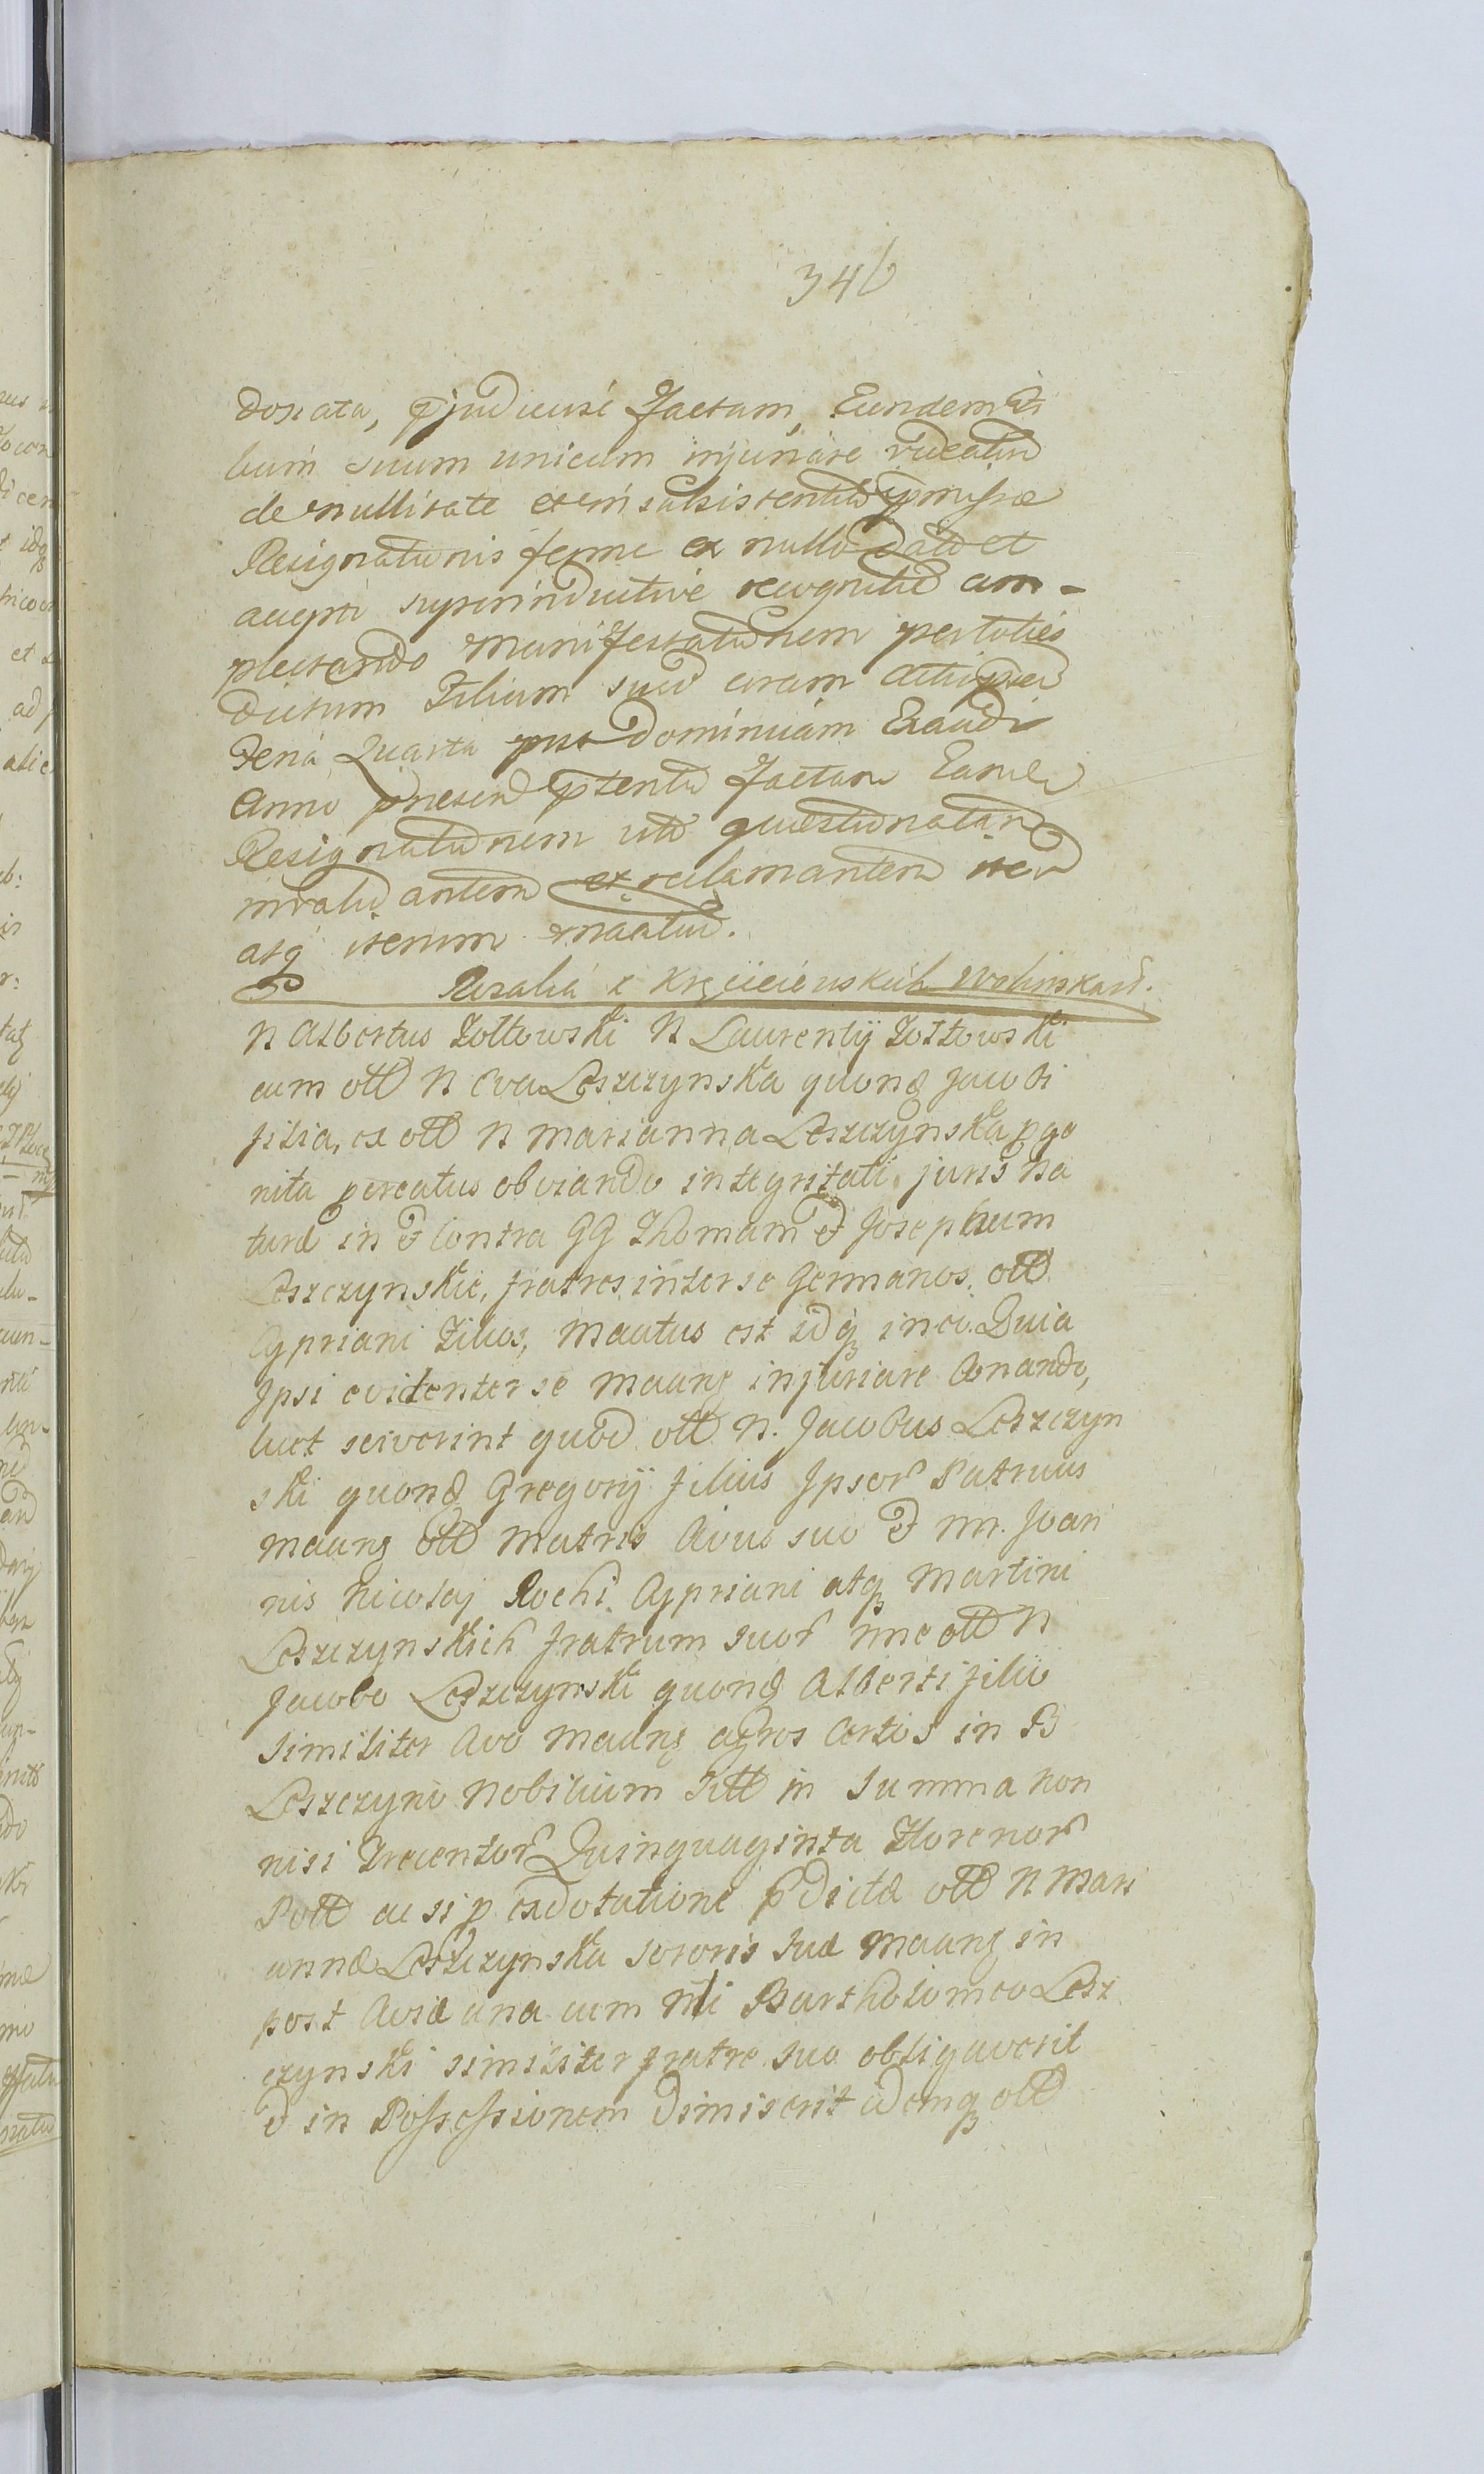 346
donata, pjudiciose factam, Eundem Fi
lium suum unicum injuriare videatur
de nullitate et insubsistentia pmissæ
Resignationis ferme ex nullo dato et
accepti superinductive recognitæ am-
plectando Manifestationem per toties
dictum Filium suum coram Actis psen
Feria Quarta post Dominicam Exaudi
Anno præsen ptenti factam Eamq
Resignationem uti quæstionatam
invalidantem et reclamantem iter
atq iterum maatur.
Rosalia e Krzeiciewskich Wolinskard.
N Albertus Zołtowski N Laurentij Zołtowski
cum olld N Eva Leszczynska quond Jacobi
filia, ex olld N Marianna Leszczynska pge
nita pcreatus obviando integritati juris na
turæ in & contra GG Thomam & Josephum
Leszczynskie, fratres inter se Germanos, olld
Cypriani Filios, Maatus est idq in eo. Quia
Ipsi evidenter se Maang injuriare Conando,
licet sciverint quod olld N. Jacobus Leszczyn
ski quond Gregorij filius Ipsor Patruus
Maang olld Matris Avus suo & nn. Joan
nis Nicolaj Rochi Cypriani atq Martini
Leszczynskich fratrum suor nne olld N
Jacobo Leszczynski quond Alberti filio
Similiter Avo Maang agros Certos in B
Leszczyno Nobilium Sitt in Summa non
nisi Trecentor Quinquaginta Florenor
Poll ac si p exdotatione pdictæ olld N Mari
annæ Leszczynska Sororis suæ Maang in
post Aviæ una cum Nli Bartholomeo Lesz
czynski similiter fratre suo obligaverit
& in Possessionem dimiserit idemq olld